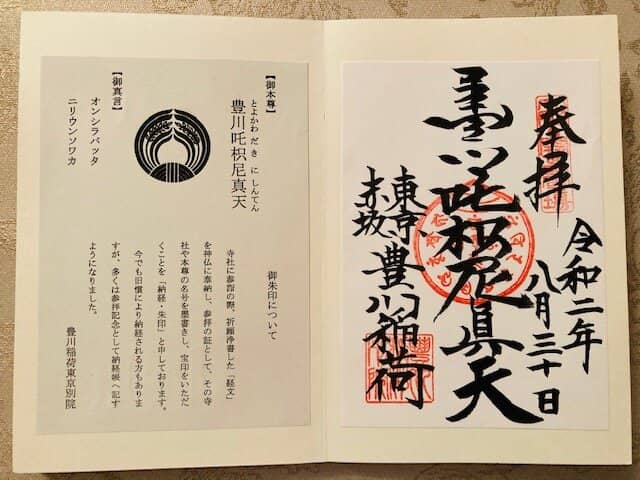 奉拝
令和二年
八月三十日
豊川吒枳尼真天
東京
赤坂
豊川稲荷
【御本尊】
とよかわ だ き に しんてん
豊川吒枳尼真天
【御真言】
オンシラバッタ
ニリウンソワカ
御朱印について
寺社に参詣の際、祈願浄書した「経文」
を神仏に奉納し、参拝の証として、その寺
社や本尊の名号を墨書きし、宝印をいただ
くことを「納経・朱印」と申しております。
今でも旧慣により納経される方もありま
すが、多くは参拝記念として納経帳へ記す
ようになりました。
豊川稲荷東京別院